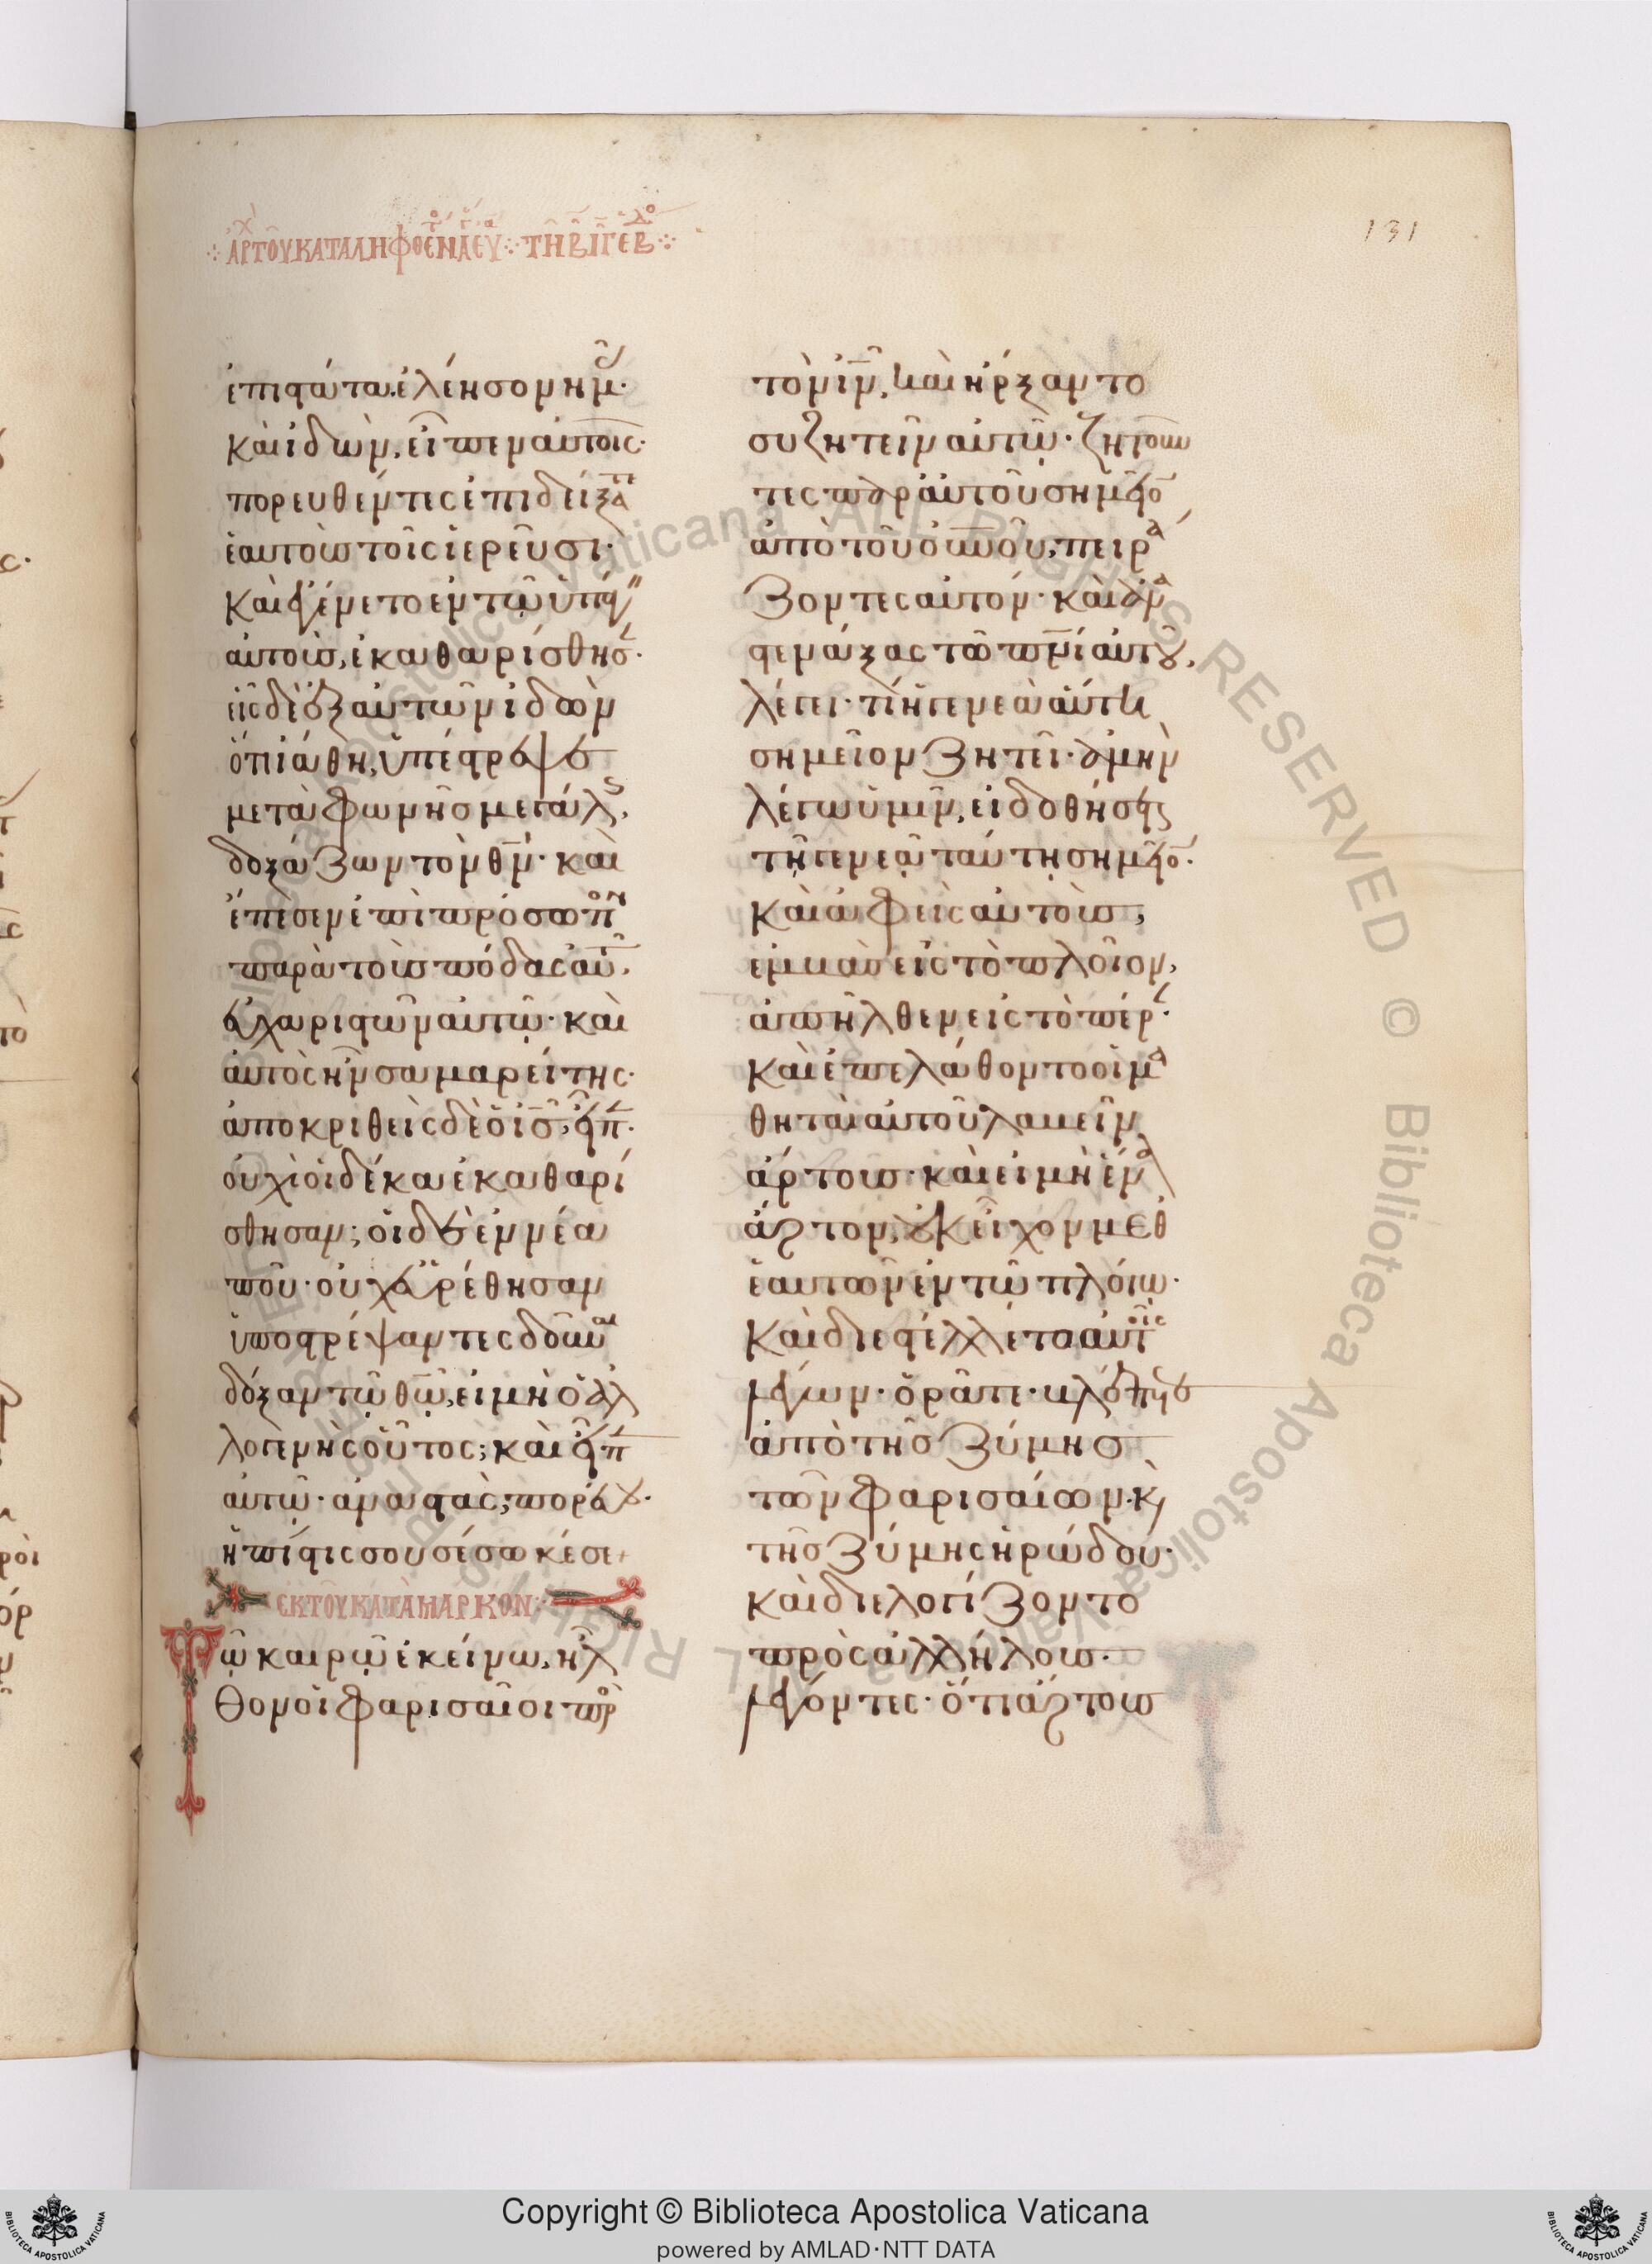 131
ἀρχ τοῦ κατὰ λη φθε ἐν ἄ ευ τῇ β ιγ εβ
ἐπιστάτα· ἐλέησον ημ·
καὶ ἰδὼν, εἶπεν αὐτοῖς·
πορευθέντες ἐπιδείξατε
ἑαυτοὺς τοῖς ἱερεῦσι·
καὶ ἐγένετο ἐν τῷ ὑπάγ
αὐτοὺς, ἐκαθαρίσθησ·
εἷς δὲ ἐξ αὐτῶν ἰδὼν
ὅτι ἰάθη, ὑπέστρεψε
μετὰ φωνῆς μεγάλ,
δοξάζων τὸν θν· καὶ
ἔπεσεν ἐπὶ πρόσωπον
παρὰ τοὺς πόδας αὐτ,
εὐχαριστῶν αὐτῷ· καὶ
αὐτὸς ἦν σαμαρείτης·
ἀποκριθεὶς δὲ ὁ ις, εἶπ·
οὐχὶ οἱ δέκα ἐκαθαρί
σθησαν; οἱ δὲ ἐννέα
ποῦ· οὐχ εὑρέθησαν
ὑποστρέψαντες δοῦναι
δόξαν τῷ θῷ, εἰ μὴ ὁ ἀλ
λογενὴς οὗτος; καὶ εἶπ
αὐτῷ· ἀναστὰς, πορεύου·
ἡ πίστις σου σέσωκέ σε
ΕΚ ΤΟΥ ΚΑΤΑ ΜΑΡΚΟΝ
Τῷ καιρῷ ἐκείνω, ἦλ
θον οἱ φαρισαῖοι πρ
τὸν ιν, καὶ ἤρξαντο
συζητεῖν αὐτῷ· ζητοῦν
τες παρ αὐτοῦ σημεῖο
ἀπὸ τοῦ ουνοῦ, πειρα
ζοντες αὐτόν· καὶ ἀνα
στενάξας τῶ πνι αὐτου,
λέγει· τί ἡ γενεὰ αὕτη
σημεῖον ζητεῖ· ἀμὴν
λέγω ὑμῖν, εἰ δοθήσεται
τῇ γενεᾷ ταύτῃ σημεῖο·
καὶ ἀφεὶς αὐτοὺς,
ἐμβὰς εἰς τὸ πλοῖον,
ἀπῆλθεν εἰς τὸ πέρ·
καὶ ἐπελάθοντο οἱ μα
θηταὶ αὐτοῦ λαβεῖν
ἄρτους· καὶ εἰ μὴ ἕνα
ἄρτον, οὐκ εἶχον μεθ
ἑαυτῶν ἐν τῶ πλόιῳ·
καὶ διεστέλλετο αὐτοῖς
λέγων· ὁρᾶτε· βλέπετε
ἀπὸ τῆς ζύμης
τῶν φαρισαίων· κ
τῆς ζύμης ἡρώδου·
καὶ διελογίζοντο
πρὸς ἀλλήλους·
λέγοντες· ὅτι ἄρτους
Copyright © Biblioteca Apostolica Vaticana
powered by AMLAD·NTT DATA